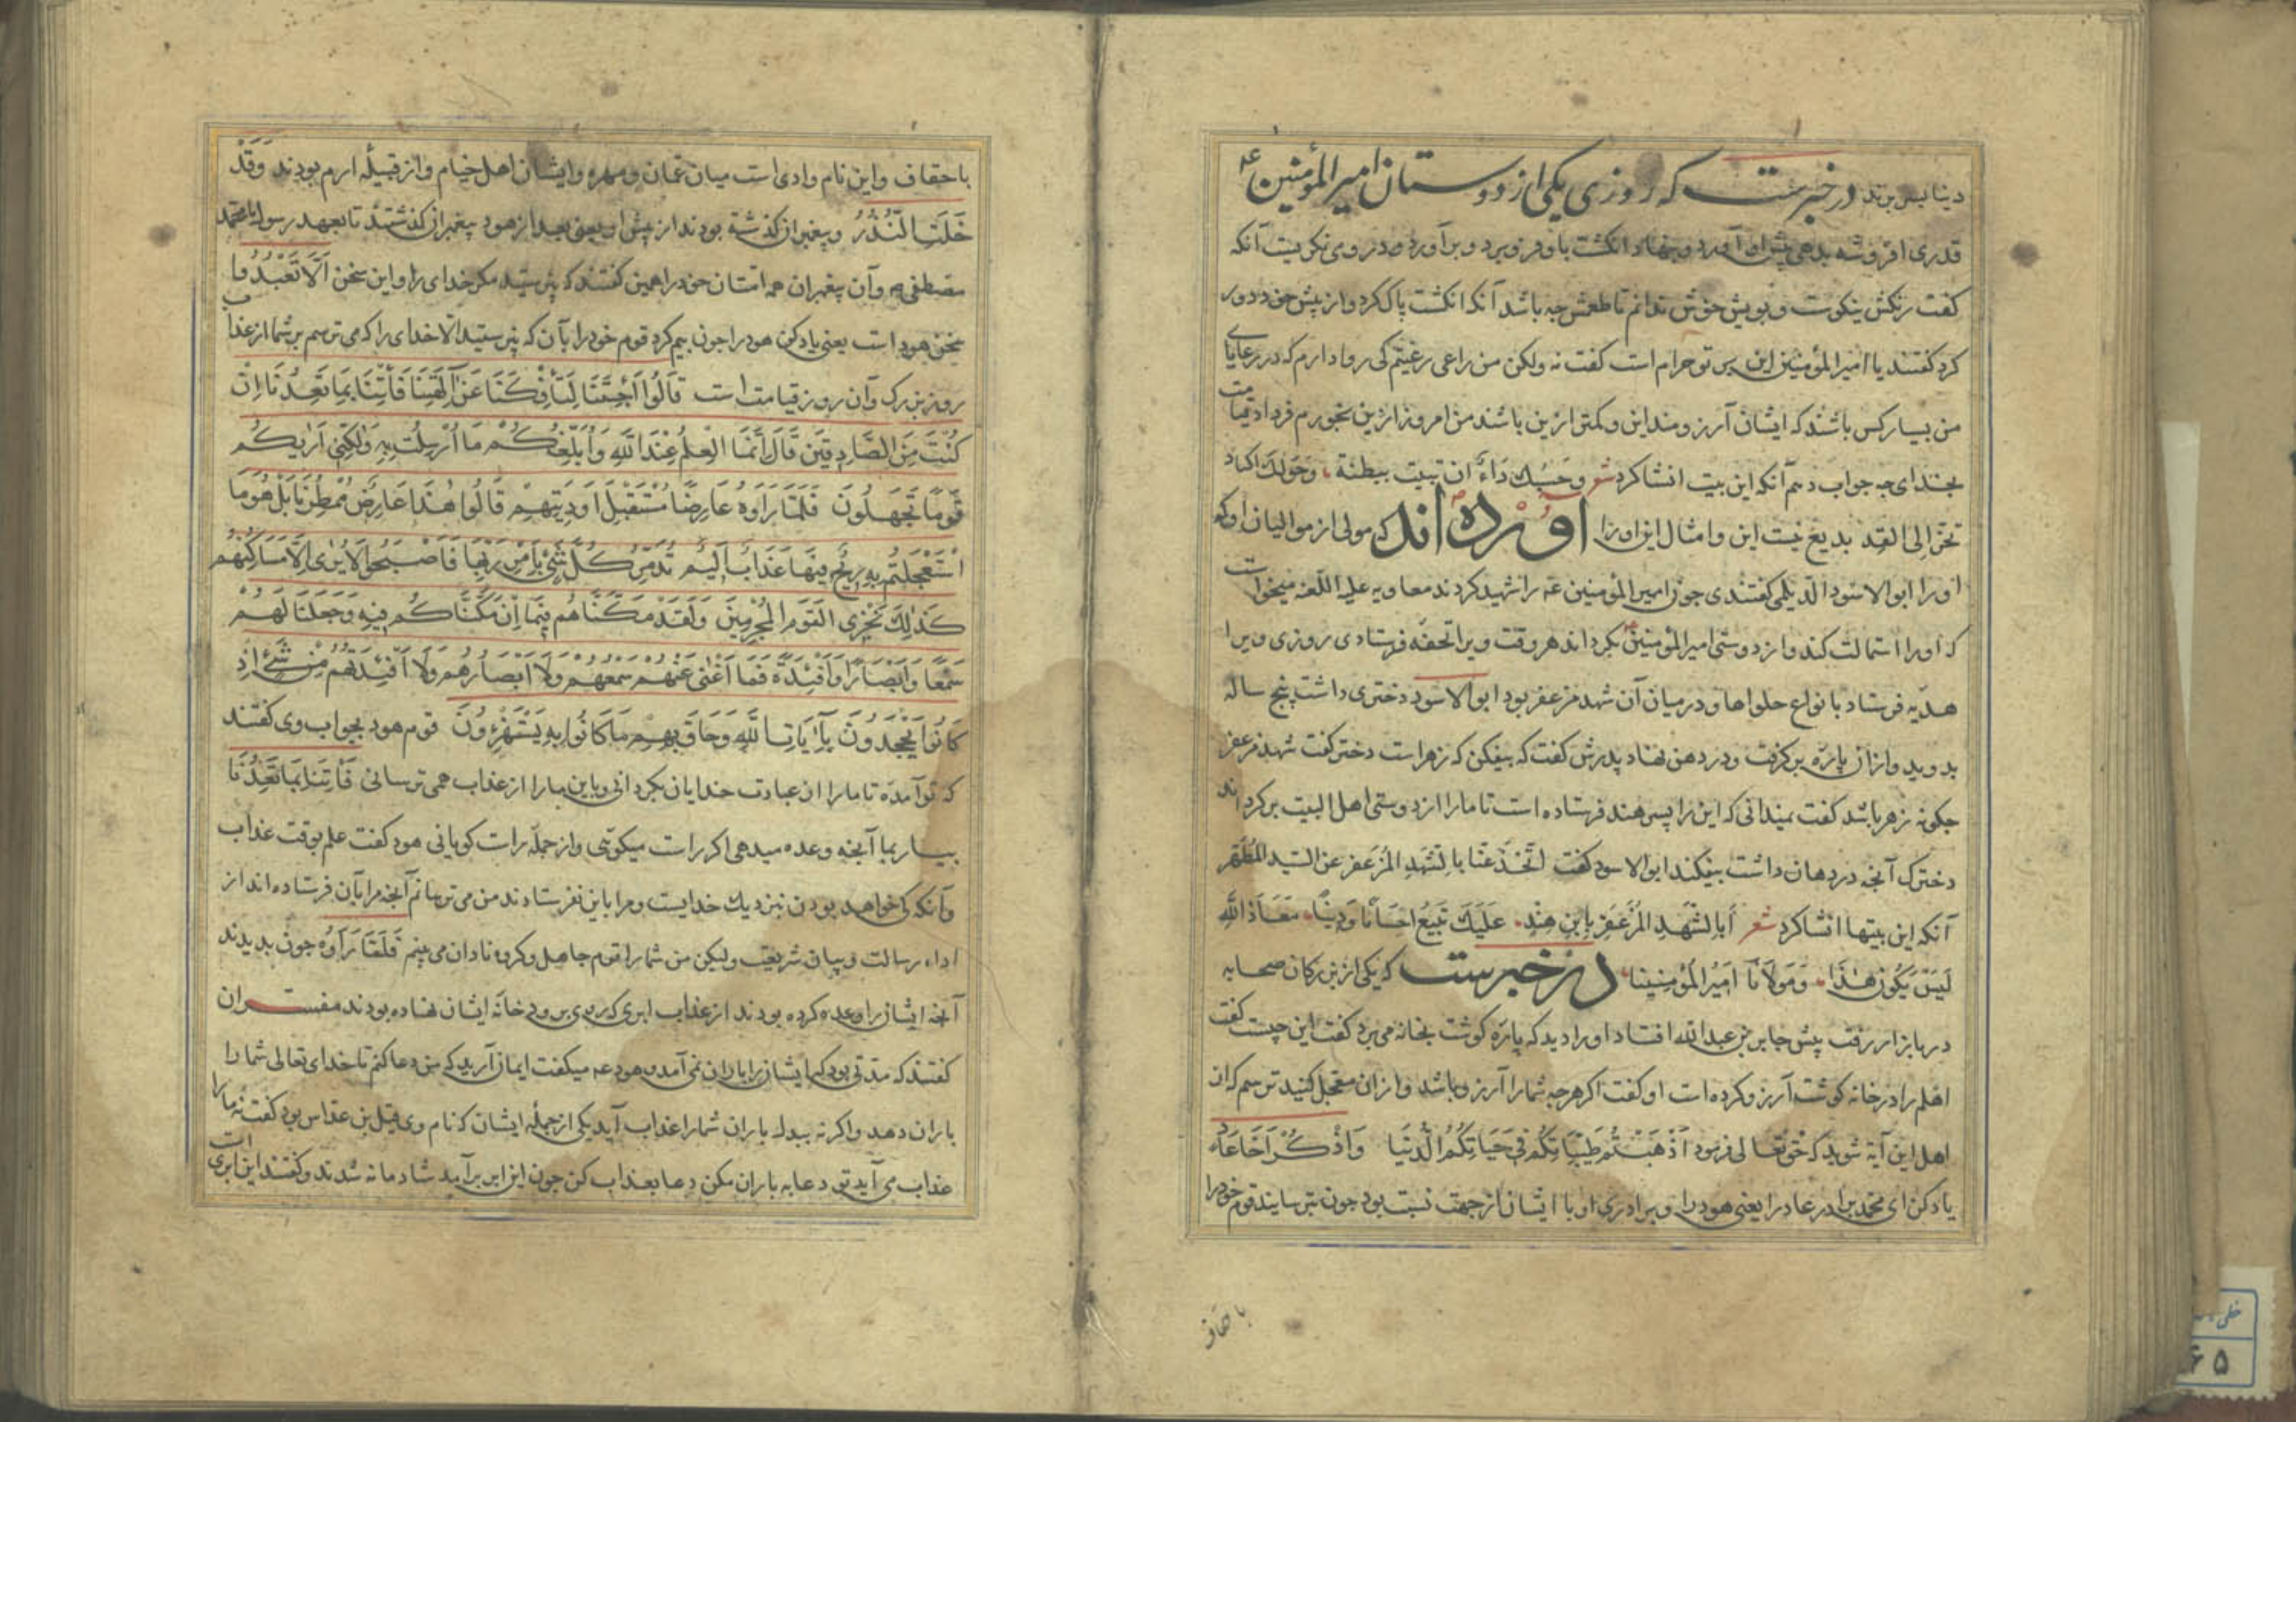 دینا بسر برند در خبرست که روزی یکی از دوستان امیر المؤمنین ع
قدری افروشه بدهی پیش او آورد و بنهاد انکشت باو فرو برد و بر آورد و در وی نکریست آنکه
کفت رنکش نیکوست و بویش خوش ندانم تا طعمش چه باشد آنکه انکشت پاک کرد و از پیش خود دور
کرد کفتند یا امیر المؤمنین این بر تو حرام است کفت نه ولکن من راعی رعیتم کی روا دارم که در رعایای
من بسیار کس باشند که ایشان آرزومند این و کمتر ازین باشند من امروز ازین بخورم فردا قیامت
بخدای چه جواب دهم آنکه این بیت انشا کرد شعر وحسبك داء ان تبیت ببطنة وحولك اکباد
تحن الی القد بدیع نیست این و امثال این او را آورده اند که مولی از موالیان او که
او را ابو الاسود الدیلمی کفتندی چون امیر المؤمنین ع را شهید کردند معاویه علیه اللعنه میخواست
که او را استمالت کند و از دوستی امیر المؤمنین بکرداند هر وقت ویرا تحفه فرستادی روزی ویرا
هدیه فرستاد با نواع حلواها و در میان آن شهد مزعفر بود ابو الاسود دختری داشت پنج ساله
بدوید و از ان پاره بر کرفت و در دهن نهاد پدرش کفت که بیفکن که زهر است دختر کفت شهد مزعفر
چکونه زهر باشد کفت نمیدانی که این را پسر هند فرستاده است تا ما را از دوستی اهل البیت بر کرداند
دخترک آنچه در دهان داشت بیفکند ابو الاسود کفت اتخدعنا بالشهد المزعفر عن السید المطهر
آنکه این بیتها انشا کرد شعر أبالشهد المزعفر یابن هند علیك نبیع احسانا ودینا معاذ الله
لیس یکون هذا ومولانا امیر المؤمنینا در خبرست که یکی از بزرکان صحابه
در بازار رفت پیش جابر بن عبد الله افتاد او را دید که پاره کوشت بخانه می برد کفت این چیست کفت
اهلم را در خانه کوشت آرزو کرده است او کفت اکر هرچه شما را آرزو باشد و از ان معجل کنید ترسم که از
اهل این آیة شوید که حق تعالی فرمود اذهبتم طیباتکم فی حیاتکم الدنیا واذکر اخا عاد
یاد کن ای محمد برادر عاد را یعنی هود را و برادری او با ایشان از جهت نسبت بود چون بترسانید قوم خود را
باحقاف
باحقاف و این نام وادی است میان عمان و مهره و ایشان اهل خیام و از قبیله ارم بودند وقد
خلت النذر و پیغمبران کذشته بودند از پیش او یعنی بعد از هود پیغمبران کذشتند تا بعهد رسول ما محمد
مصطفی ص و آن پیغمبران همه امتان خود را همین کفتند که نپرستید مکر خدای را و این سخن الا تعبدوا ما
سخن هود است یعنی یاد کن هود را چون بیم کرد قوم خود را بآن که نپرستید الا خدای را که می ترسم بر شما از عذاب
روز بزرک و آن روز قیامت است قالوا أجئتنا لتأفکنا عن آلهتنا فأتنا بما تعدنا ان
کنت من الصادقین قال انما العلم عند الله وأبلغکم ما ارسلت به ولکنی اریکم
قوما تجهلون فلما راوه عارضا مستقبل اودیتهم قالوا هذا عارض ممطرنا بل هو ما
استعجلتم به ریح فیها عذاب الیم تدمر کل شیء بامر ربها فاصبحوا لا یری الا مساکنهم
کذلك نجزی القوم المجرمین ولقد مکناهم فیما ان مکناکم فیه وجعلنا لهم
سمعا وابصارا وافئدة فما اغنی عنهم سمعهم ولا ابصارهم ولا افئدتهم من شیء اذ
کانوا یجحدون بآیات الله وحاق بهم ما کانوا به یستهزؤن قوم هود بجواب وی کفتند
که تو آمده تا ما را از عبادت خدایان بکردانی و باین ما را از عذاب همی ترسانی فأتنا بما تعدنا
بیار بما آنچه وعده میدهی اکر راست میکوئی و از جمله راست کویانی هود کفت علم بوقت عذاب
و آنکه کی خواهد بودن نزدیك خدایست و مرا باین نفرستادند من می رسانم آنچه مرا بآن فرستاده اند از
اداء رسالت و بیان شریعت ولیکن من شما را قوم جاهل و کروه نادان می بینم فلما رأوه چون بدیدند
آنچه ایشانرا وعده کرده بودند از عذاب ابری که روی بر ودخانه ایشان نهاده بودند مفسران
کفتند که مدتی بود که ایشانرا باران نمی آمد و هود ع میکفت ایمان آرید که من دعا کنم تا خدای تعالی شما را
باران دهد و اکر نه ببدل باران شما را عذاب آید یکی از جمله ایشان که نام وی قیل بن عقاس بود کفت نه ما را
عذاب می آید تو دعا به باران مکن دعا بعذاب کن چون این ابر برآمد شادمانه شدند و کفتند این ابری است
خطی
۶۵